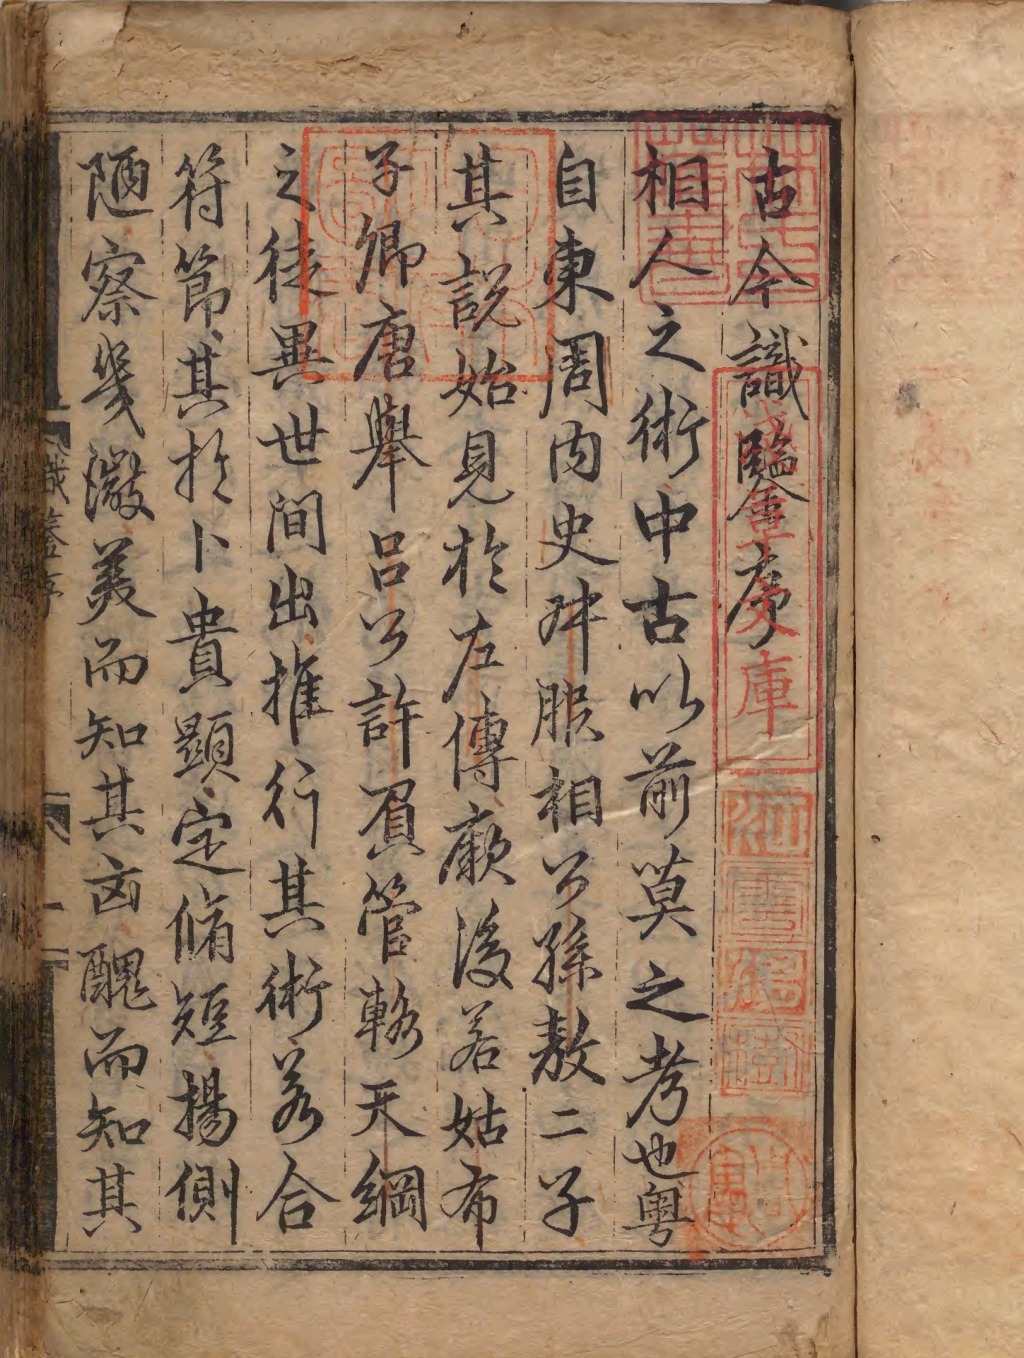 古今識鑒序
相人之術中古以前莫之考也粤
自東周内史叔服相公孫敖二子
其說始見於左傳厥後若姑布
子卿唐舉呂公許負管輅天綱
之徒異世間出推行其術若合
符節其於卜貴顯定脩短揚側
陋察幾微美而知其凶醜而知其
庫